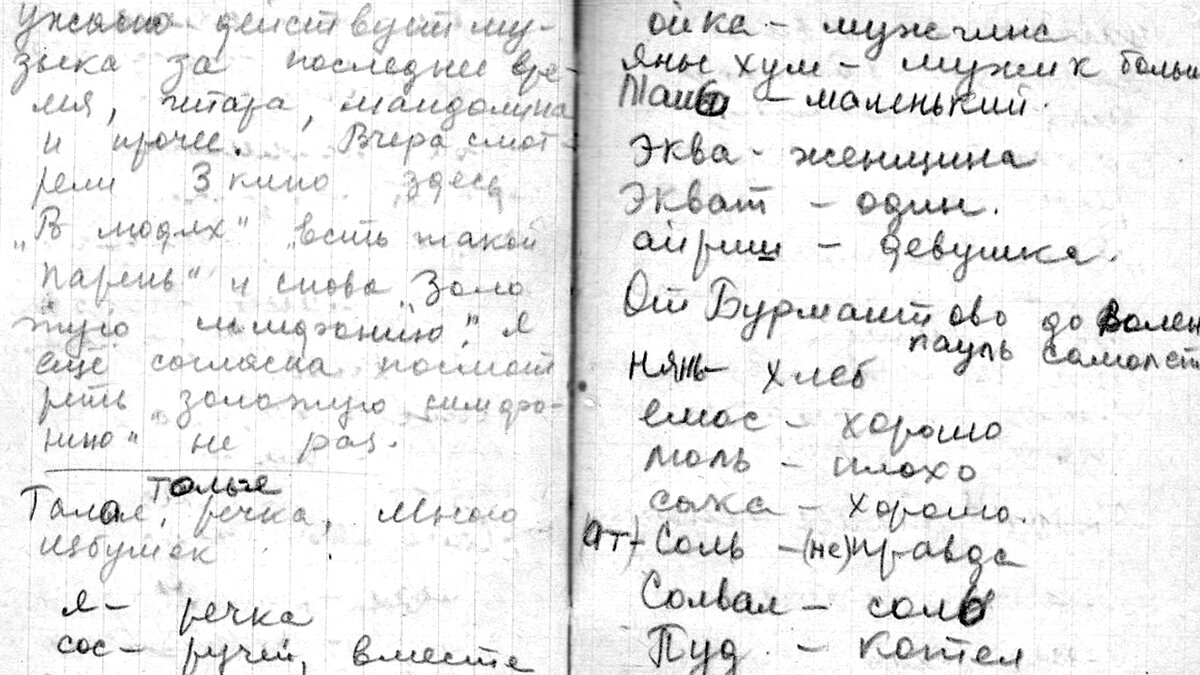 ужасно действует му-
зыка за последнее вре-
мя, гитара, мандолина
и прочее. Вчера смот-
рели 3 кино здесь
„В людях" „есть такой
парень" и снова „Золо
тую симфонию", я
еще согласна посмот
реть „золотую симфо-
нию" не раз.
Толье
Талая, речка, много
избушек
я – речка
сос – ручей, вместе
ойка – мужчина
яны хум – мужик больш
мань – маленький.
эква – женщина
экват – один.
айриш – девушка.
От Бурмантово до Волен
пауль самолет
нянь – хлеб
емас – хорошо
люль – плохо
сака – хорошо.
(ат)-соль – (не)правда
Солвал – соль
Пуд – котел